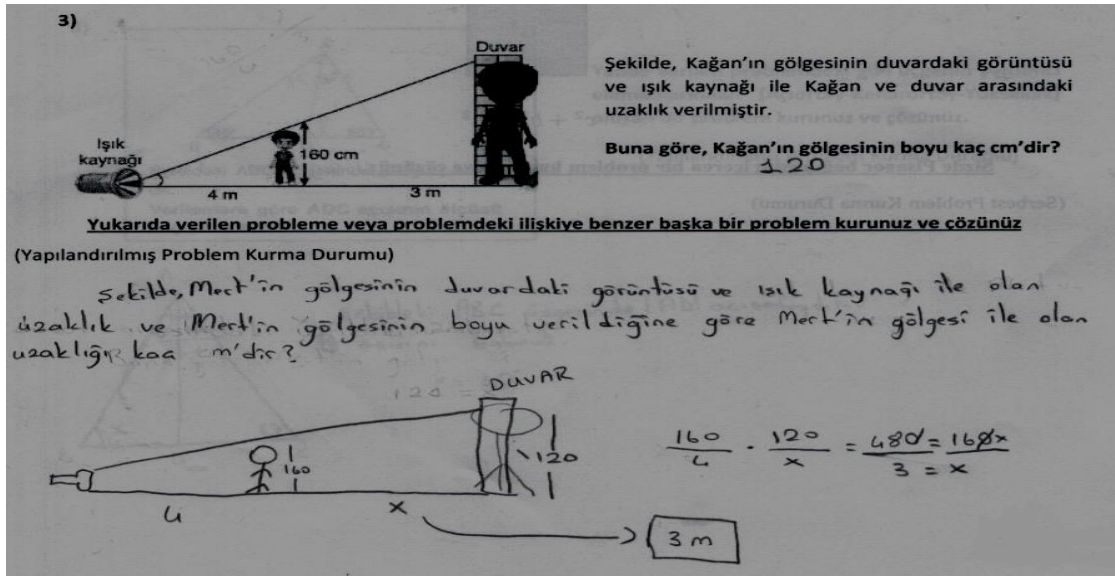 3)
Duvar
Işık
kaynağı
160 cm
4 m
3 m
Şekilde, Kağan'ın gölgesinin duvardaki görüntüsü
ve ışık kaynağı ile Kağan ve duvar arasındaki
uzaklık verilmiştir.
Buna göre, Kağan'ın gölgesinin boyu kaç cm'dir?
120
Yukarıda verilen probleme veya problemdeki ilişkiye benzer başka bir problem kurunuz ve çözünüz
(Yapılandırılmış Problem Kurma Durumu)
Şekilde, Mert'in gölgesinin duvardaki görüntüsü ve ışık kaynağı ile olan
uzaklık ve Mert'in gölgesinin boyu verildiğine göre Mert'in gölgesi ile olan
uzaklığı kaç m'dir?
DUVAR
160
120
4
x
160/4 · 120/x = 480/3 = 160x/x
3 = x
3 m